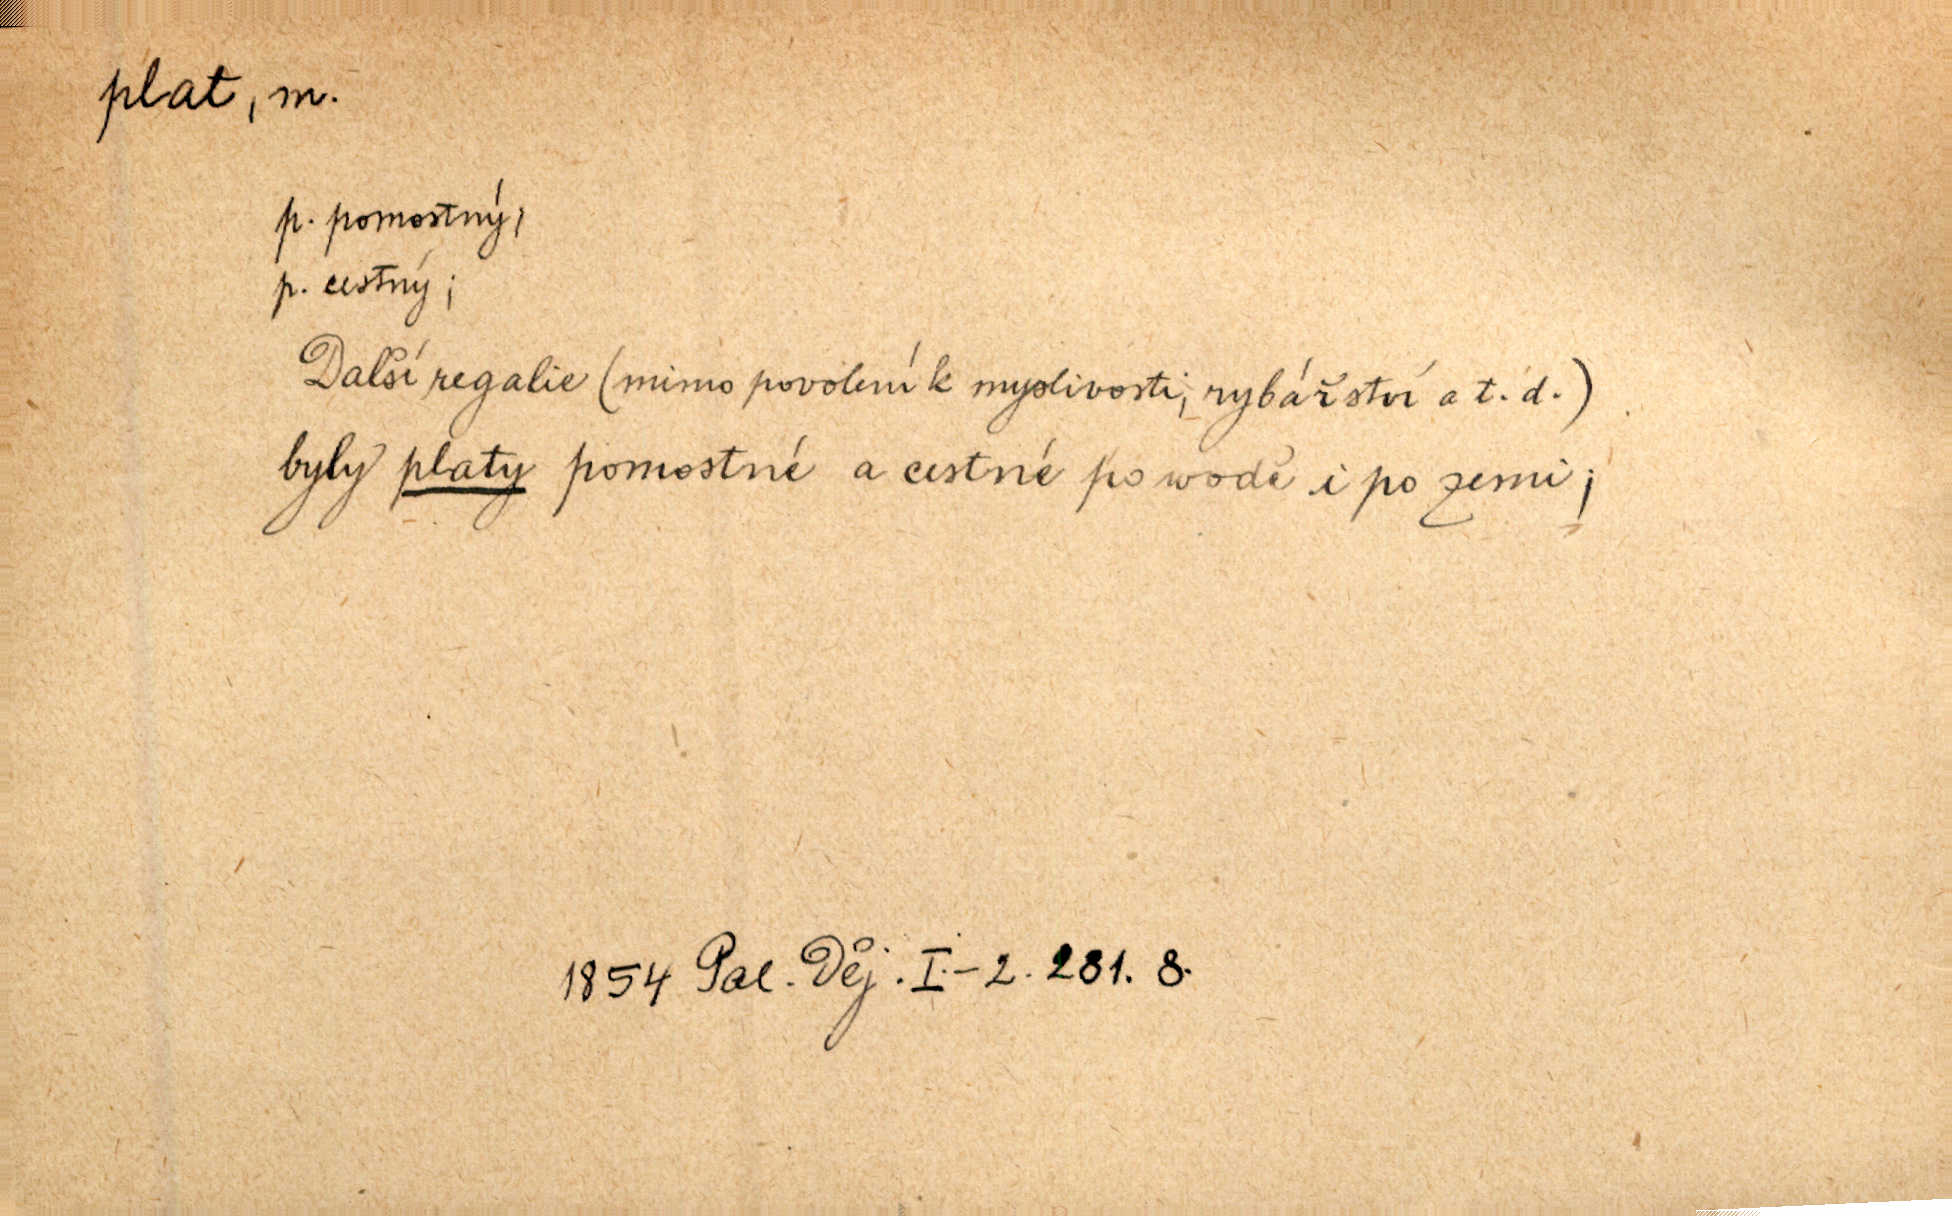 plat, m.
p. pomostný;
p. cestný;
Další regalie (mimo povolení k myslivosti, rybářství a t. d.)
byly platy pomostné a cestné po wodě i po zemi;
1854 Pal. Děj. I.-2. 231. 8.